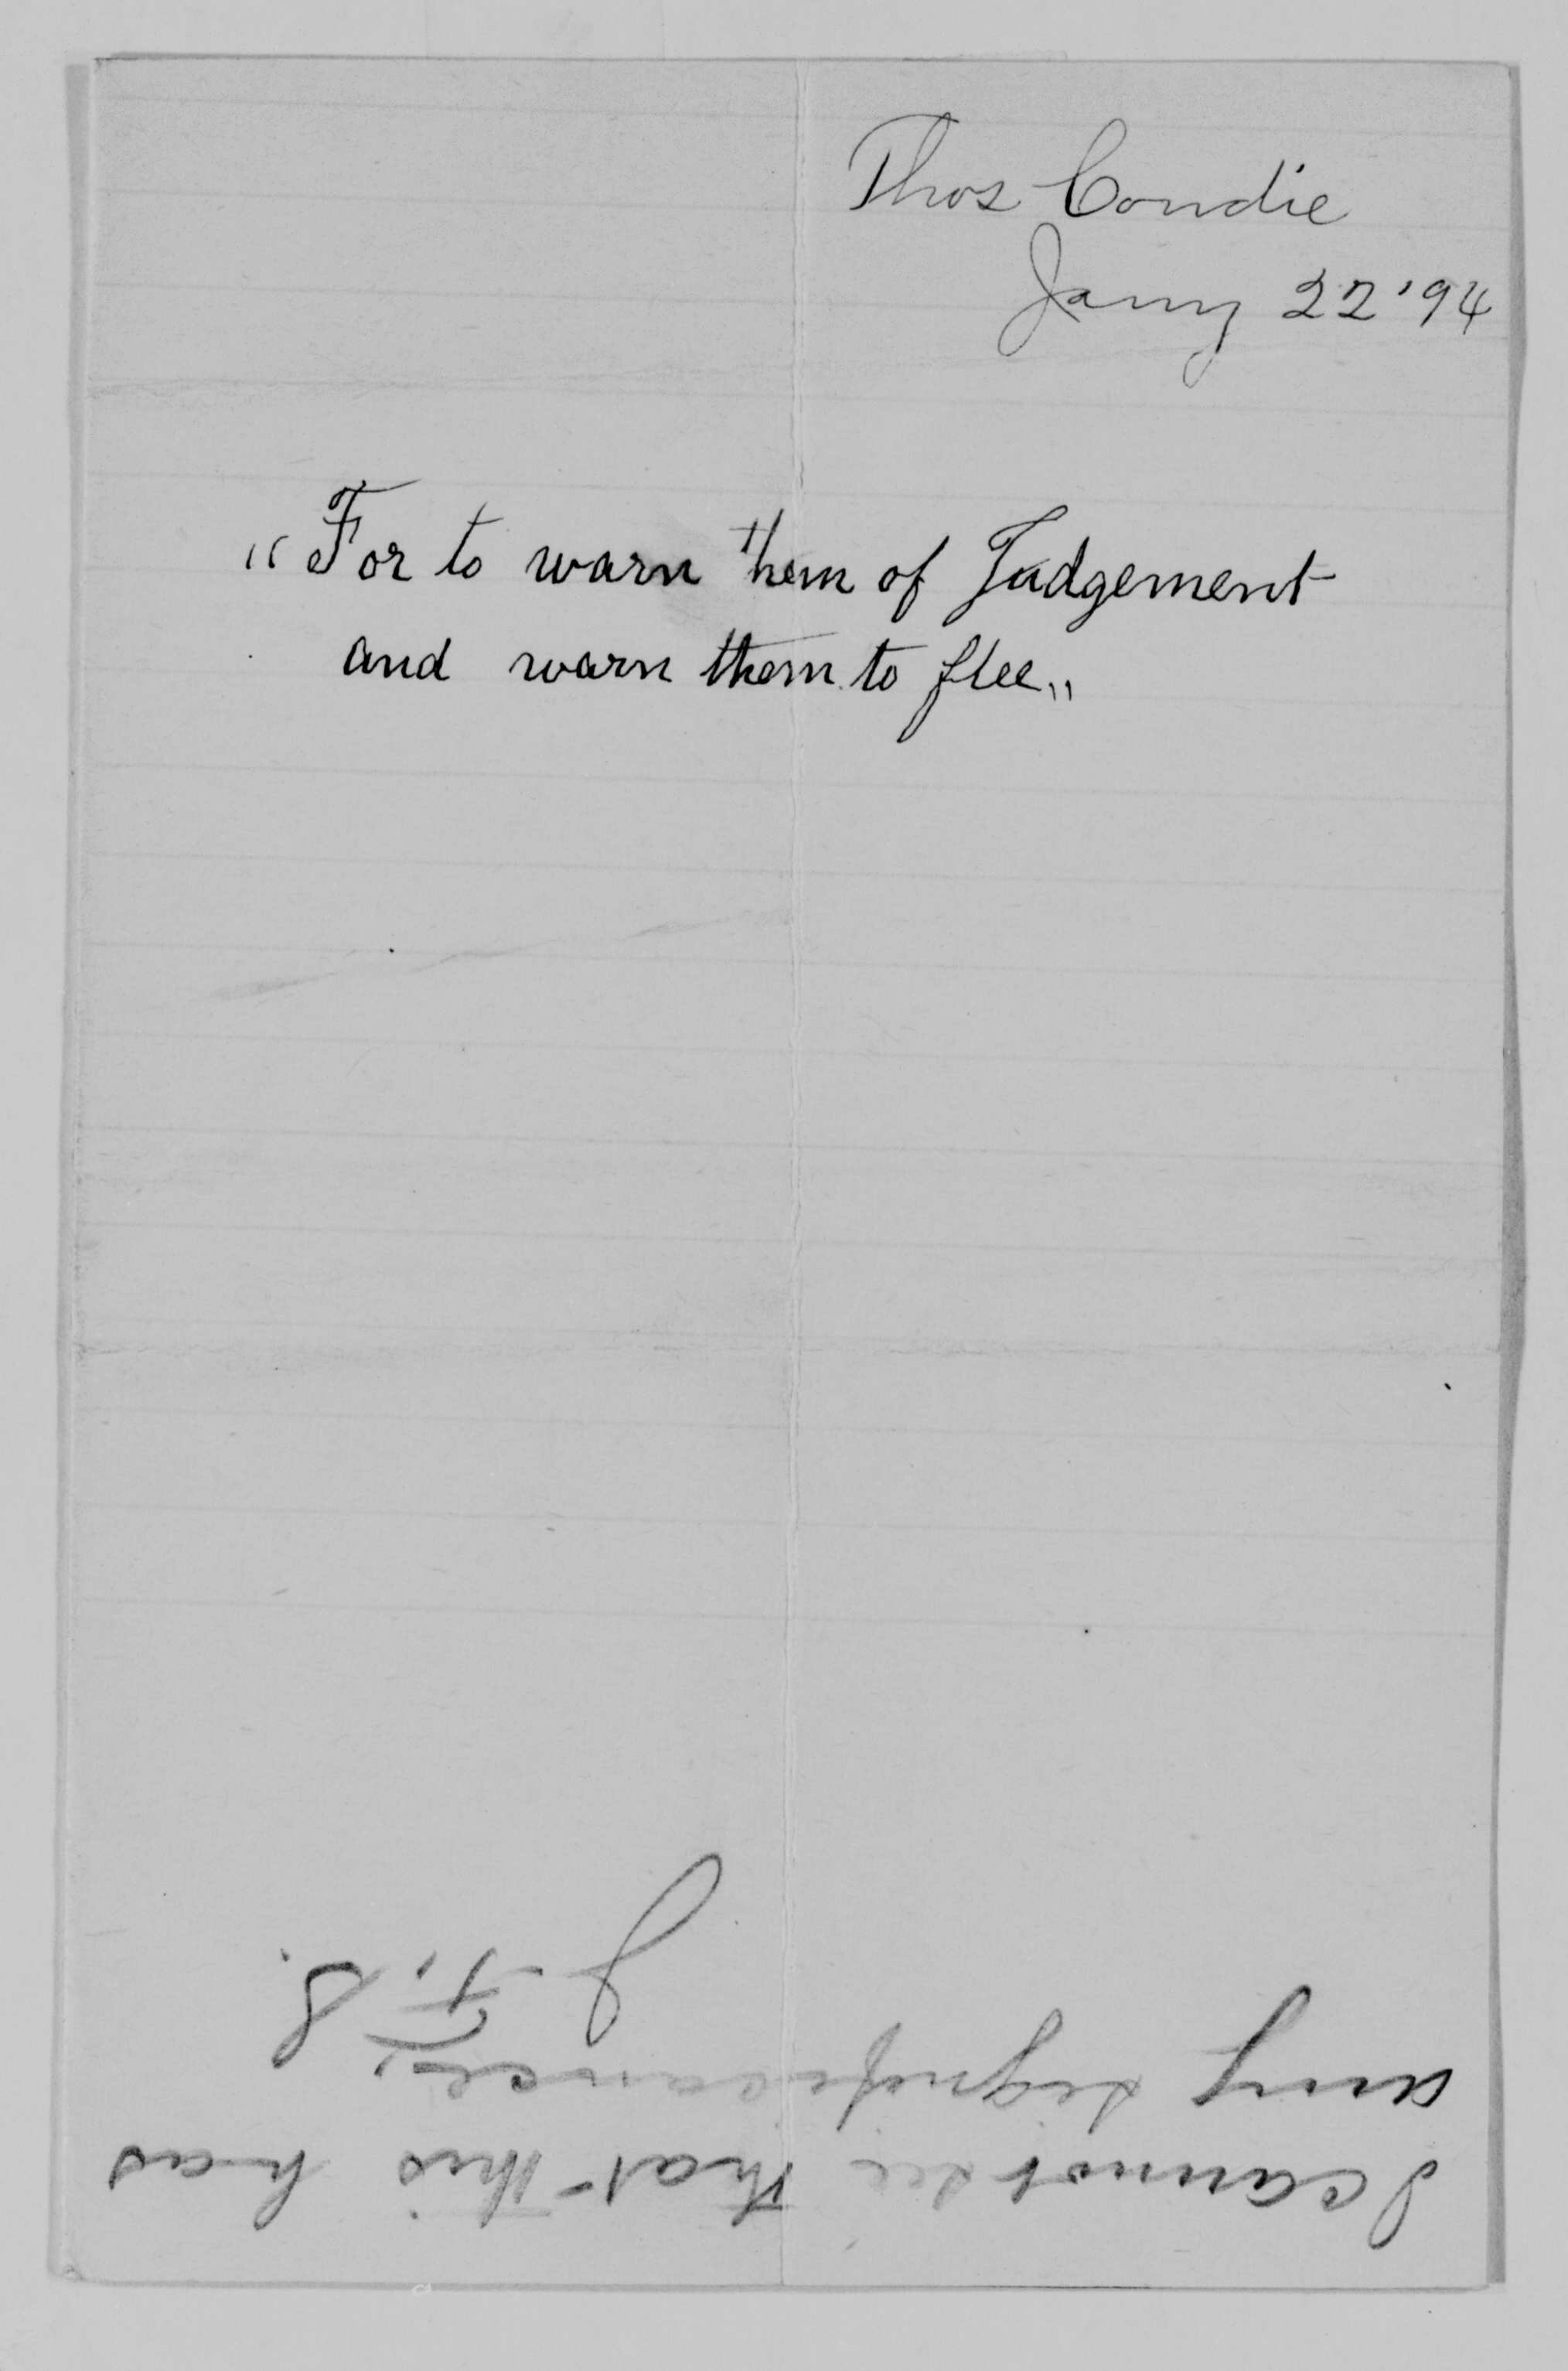 Thos Condie
Jany 22 '94
"For to warn them of Judgement
and warn them to flee"
I cannot see that this has
any significance,
J. F. S.